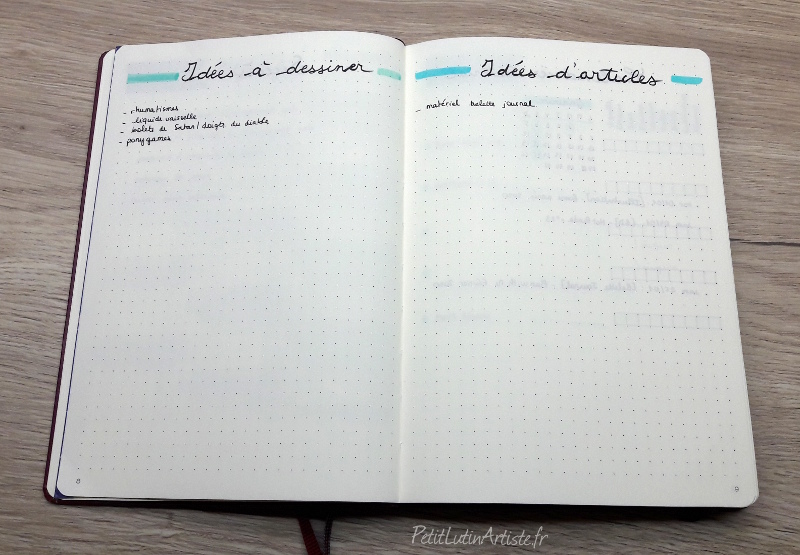 Idées à dessiner
- rhumatismes
- liquide vaisselle
- bolets de Satan / doigts du diable
- pony games
8
Idées d'articles
- matériel bullet journal
9
PetitLutinArtiste.fr